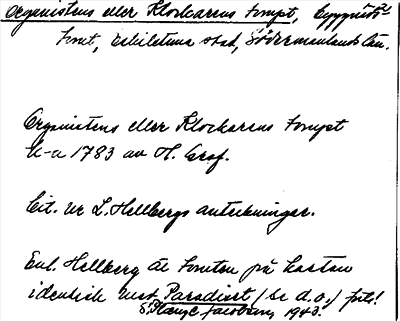 Organistens eller Klockarens tompt, Byggnads-
tomt, Eskilstuna stad, Södermanlands län.
Organistens eller Klockarens Tompt
k-a 1783 av H. Graf.
Cit. ur L. Hellbergs anteckningar.
Enl. Hellberg är tomten på kartan
identisk med Paradiset (se d.o.)
Jacobson, 1943.